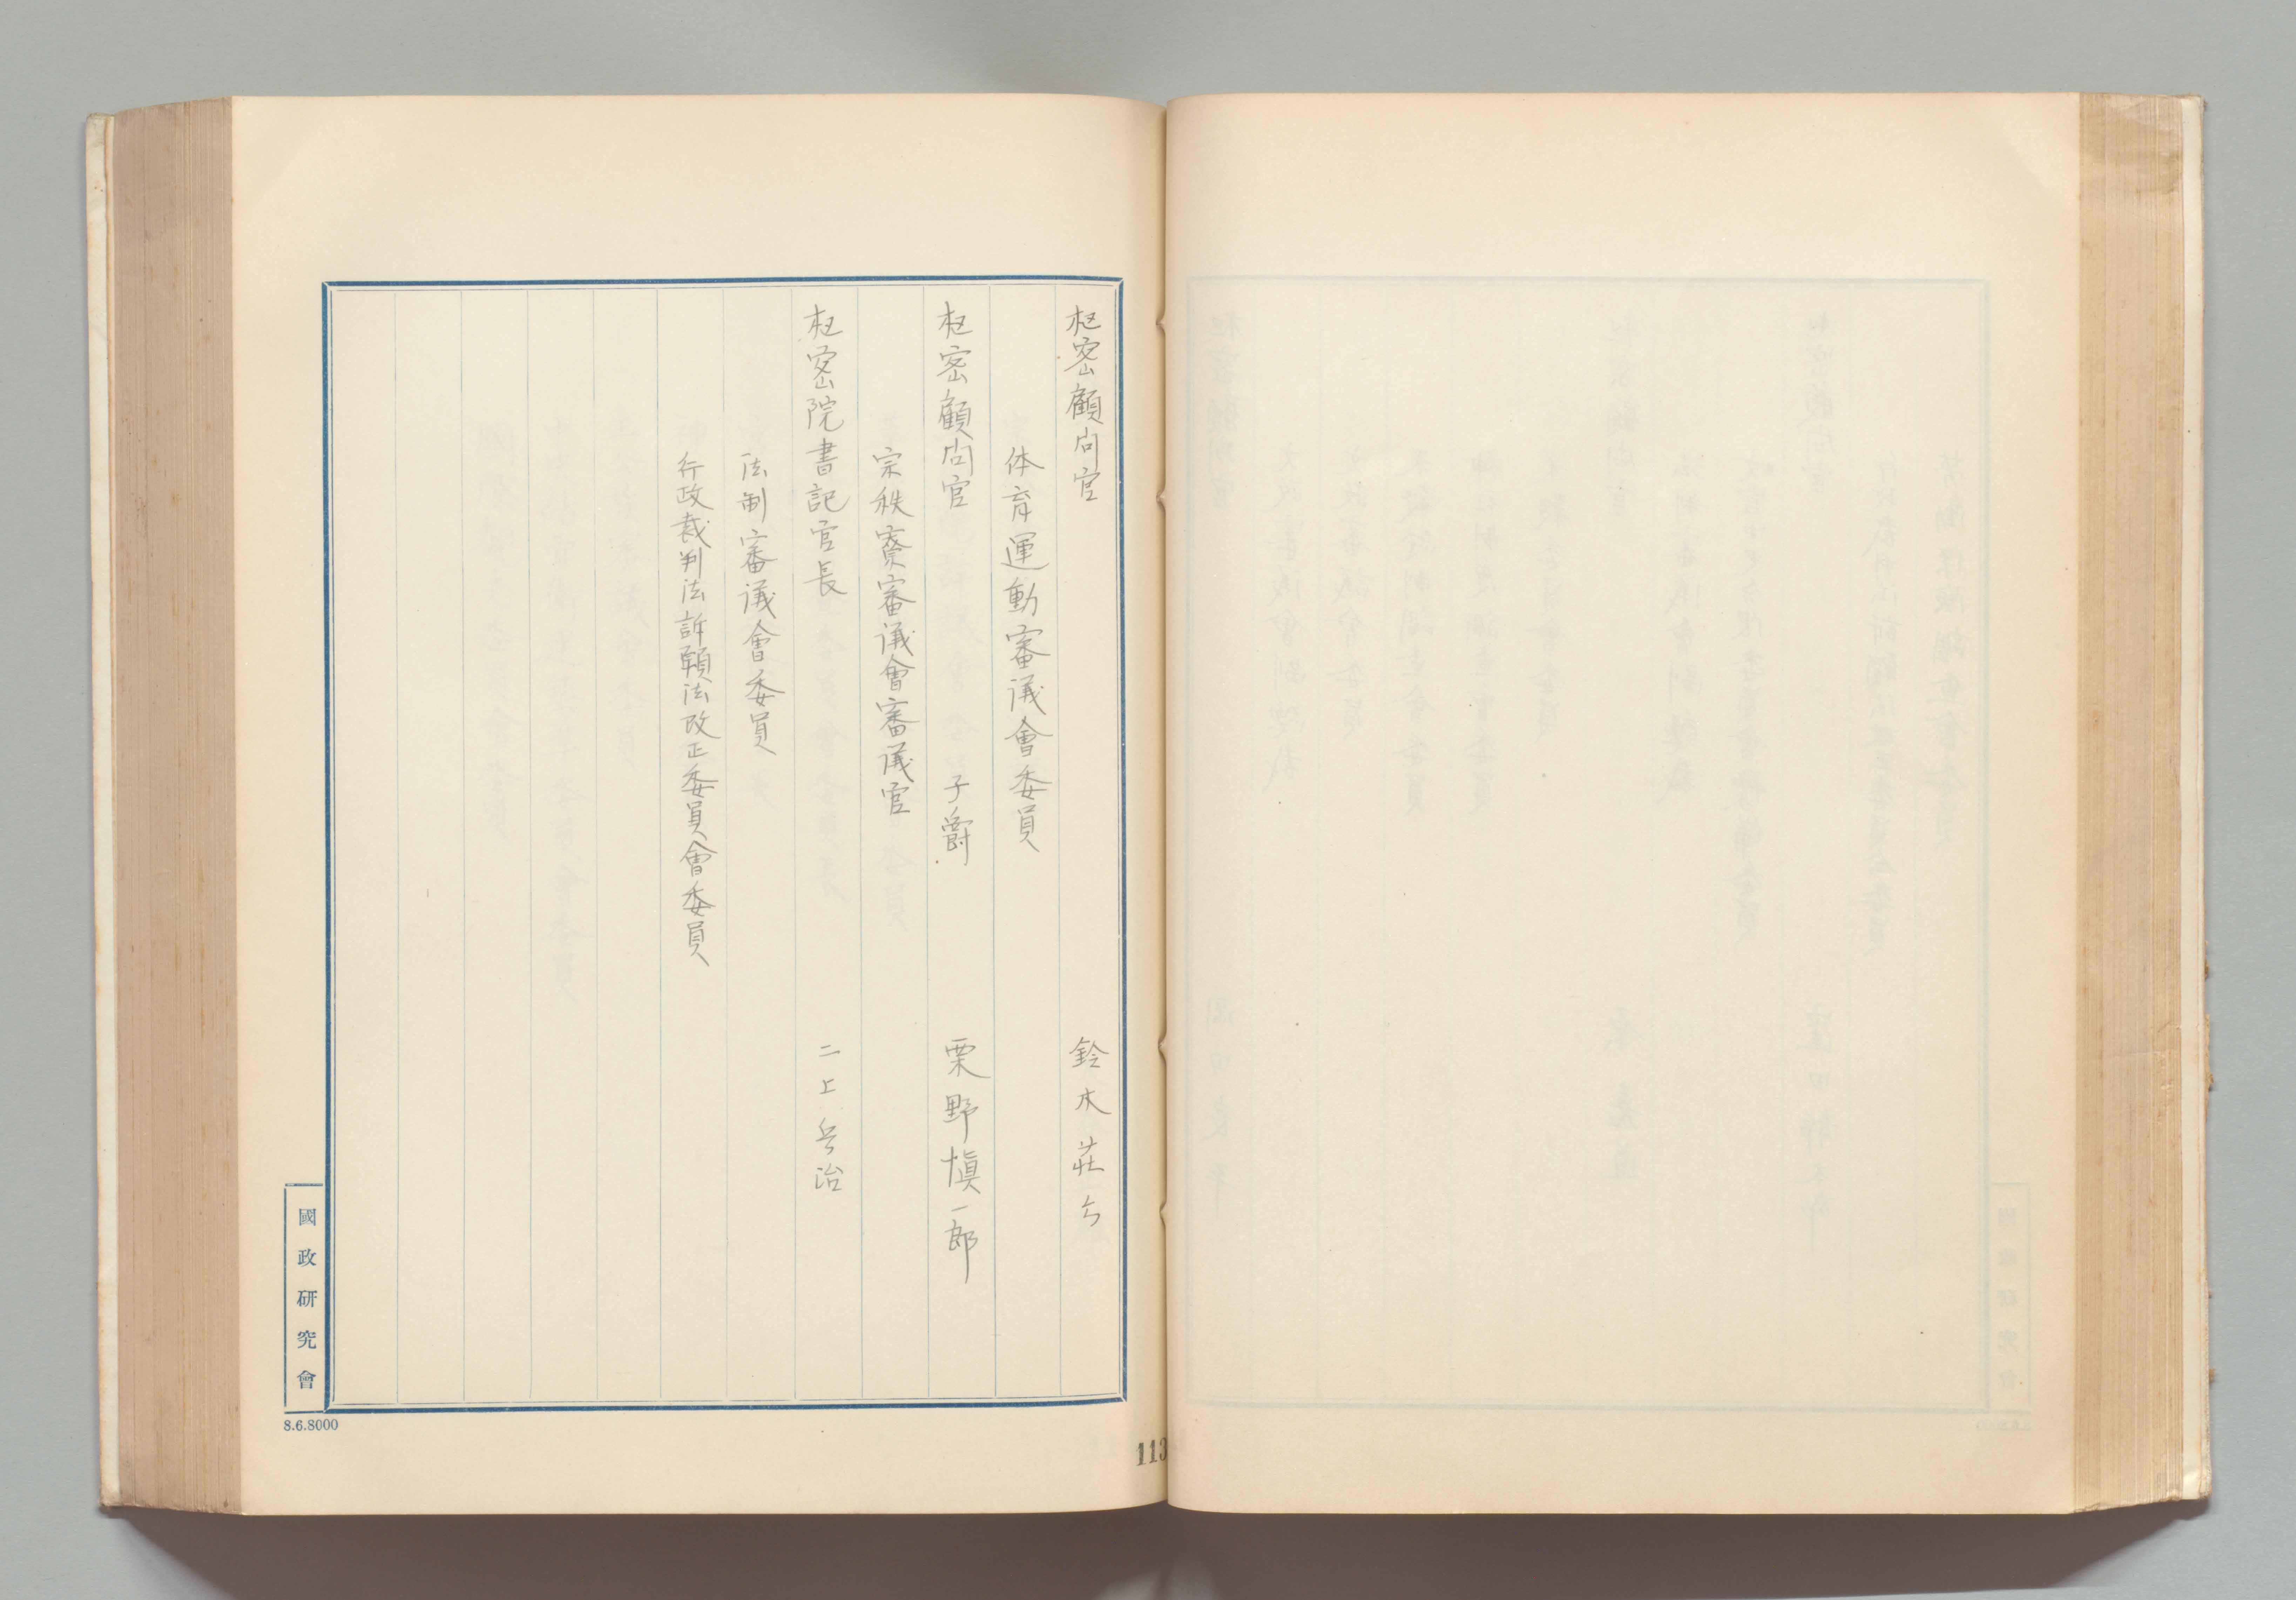 枢密顧問官 鈴木荘六
体育運動審議會委員
枢密顧問官 子爵 栗野愼一郎
宗秩寮審議會審議官
枢密院書記官長 二上兵治
法制審議會委員
行政裁判法訴願法改正委員會委員
國政研究會
8.6.8000
113